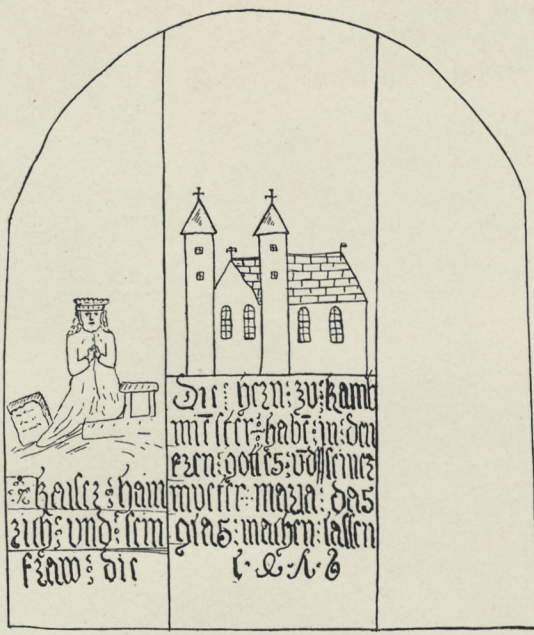 Keiser : hain
rich : und : sein
fraw : die
Die : hern : zu : kamb
habē : in : den
eren : gottes : vn̄d seiner
mueter : maria : das
glas : machen : lassen